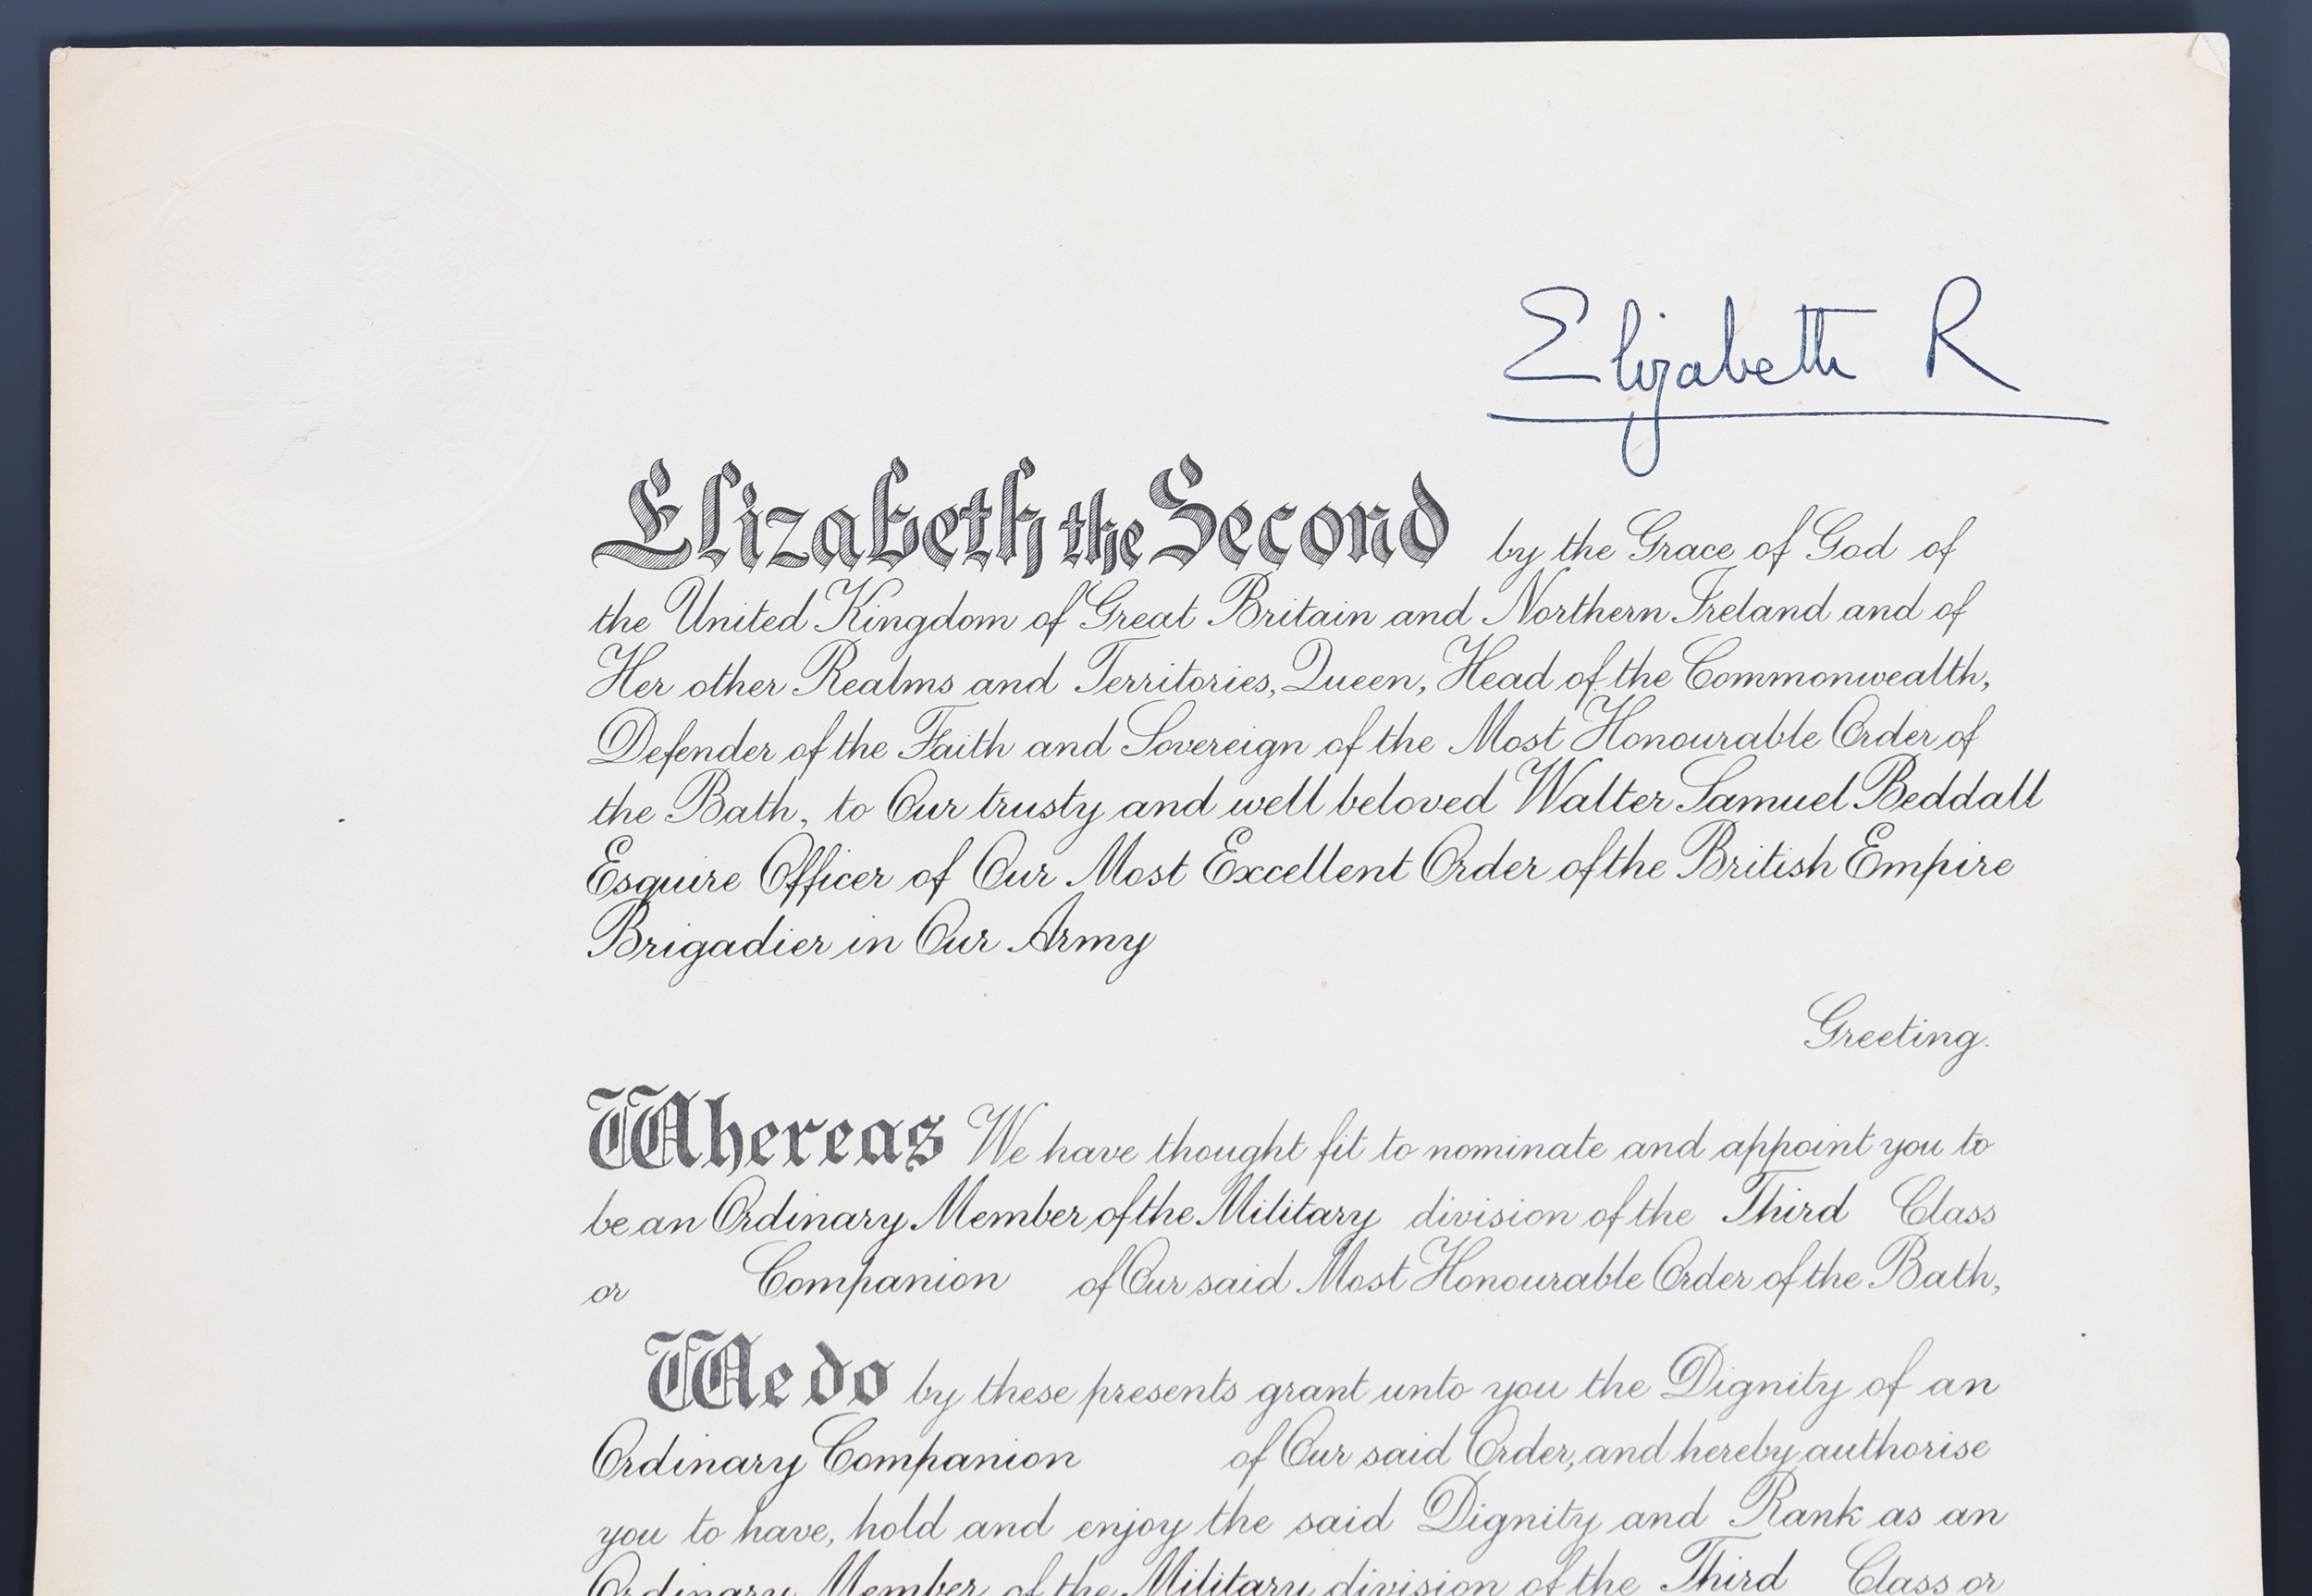 Elizabeth R
Elizabeth the Second by the Grace of God of
the United Kingdom of Great Britain and Northern Ireland and of
Her other Realms and Territories, Queen, Head of the Commonwealth,
Defender of the Faith and Sovereign of the Most Honourable Order of
the Bath, to Our trusty and well beloved Walter Samuel Beddall
Esquire Officer of Our Most Excellent Order of the British Empire
Brigadier in Our Army
Greeting.
Whereas We have thought fit to nominate and appoint you to
be an Ordinary Member of the Military division of the Third Class
or Companion of Our said Most Honourable Order of the Bath,
We do by these presents grant unto you the Dignity of an
Ordinary Companion of Our said Order, and hereby authorise
you to have, hold and enjoy the said Dignity and Rank as an
Ordinary Member of the Military division of the Third Class or